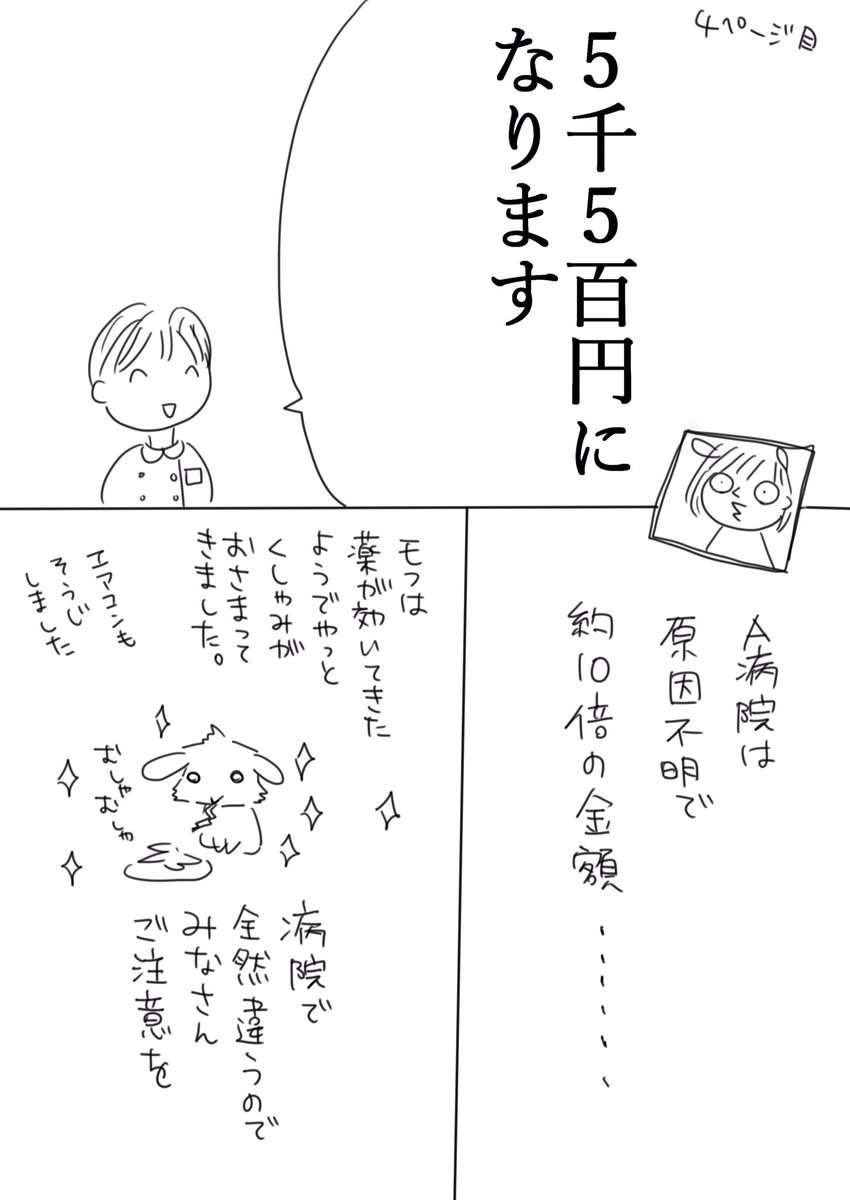 4ページ目
5千5百円に
なります
A病院は
原因不明で
約10倍の金額……
モフは
薬が効いてきた
ようでやっと
くしゃみが
おさまって
きました。
エアコンも
そうじ
しました
むしゃ
むしゃ
病院で
全然違うので
みなさん
ご注意を